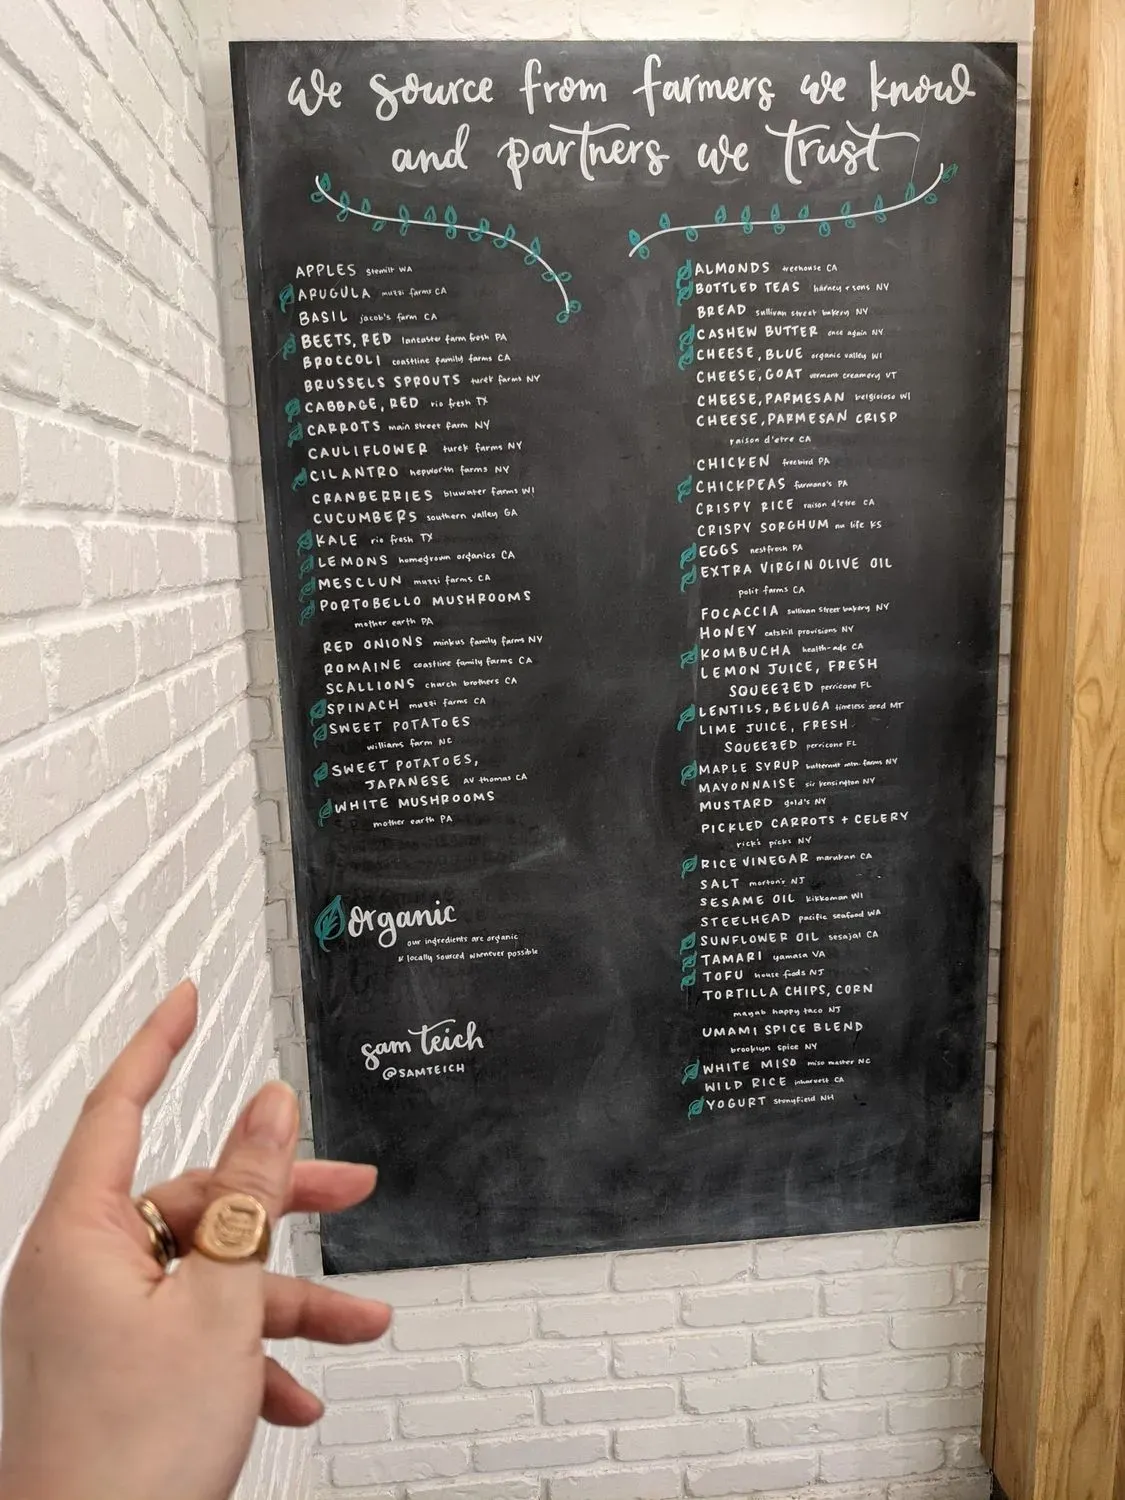 we source from farmers we know
and partners we trust
APPLES stemilt WA
ARUGULA muzzi farms CA
BASIL jacob's farm CA
BEETS, RED lancaster farm fresh PA
BROCCOLI coastline family farms CA
BRUSSELS SPROUTS turek farms NY
CABBAGE, RED rio fresh TX
CARROTS main street farm NY
CAULIFLOWER turek farms NY
CILANTRO hepworth farms NY
CRANBERRIES bluwater farms WI
CUCUMBERS southern valley GA
KALE rio fresh TX
LEMONS homegrown organics CA
MESCLUN muzzi farms CA
PORTOBELLO MUSHROOMS
mother earth PA
RED ONIONS minkus family farms NY
ROMAINE coastline family farms CA
SCALLIONS church brothers CA
SPINACH muzzi farms CA
SWEET POTATOES
williams farm NC
SWEET POTATOES,
JAPANESE AV thomas CA
WHITE MUSHROOMS
mother earth PA
organic
our ingredients are organic
& locally sourced whenever possible
sam teich
@SAMTEICH
ALMONDS treehouse CA
BOTTLED TEAS harney + sons NY
BREAD sullivan street bakery NY
CASHEW BUTTER once again NY
CHEESE, BLUE organic valley WI
CHEESE, GOAT vermont creamery VT
CHEESE, PARMESAN belgioioso WI
CHEESE, PARMESAN CRISP
raison d'etre CA
CHICKEN freebird PA
CHICKPEAS furmano's PA
CRISPY RICE raison d'etre CA
CRISPY SORGHUM nu life KS
EGGS nestfresh PA
EXTRA VIRGIN OLIVE OIL
polit farms CA
FOCACCIA sullivan street bakery NY
HONEY catskill provisions NY
KOMBUCHA health-ade CA
LEMON JUICE, FRESH
SQUEEZED perricone FL
LENTILS, BELUGA timeless seed MT
LIME JUICE, FRESH
SQUEEZED perricone FL
MAPLE SYRUP butternut mtn. farms NY
MAYONNAISE sir kensington NY
MUSTARD gold's NY
PICKLED CARROTS + CELERY
rick's picks NY
RICE VINEGAR marukan CA
SALT morton's NJ
SESAME OIL kikkoman WI
STEELHEAD pacific seafood WA
SUNFLOWER OIL sesajal CA
TAMARI yamasa VA
TOFU house foods NJ
TORTILLA CHIPS, CORN
mayab happy taco NJ
UMAMI SPICE BLEND
brooklyn spice NY
WHITE MISO miso master NC
WILD RICE inharvest CA
YOGURT stonyfield NH